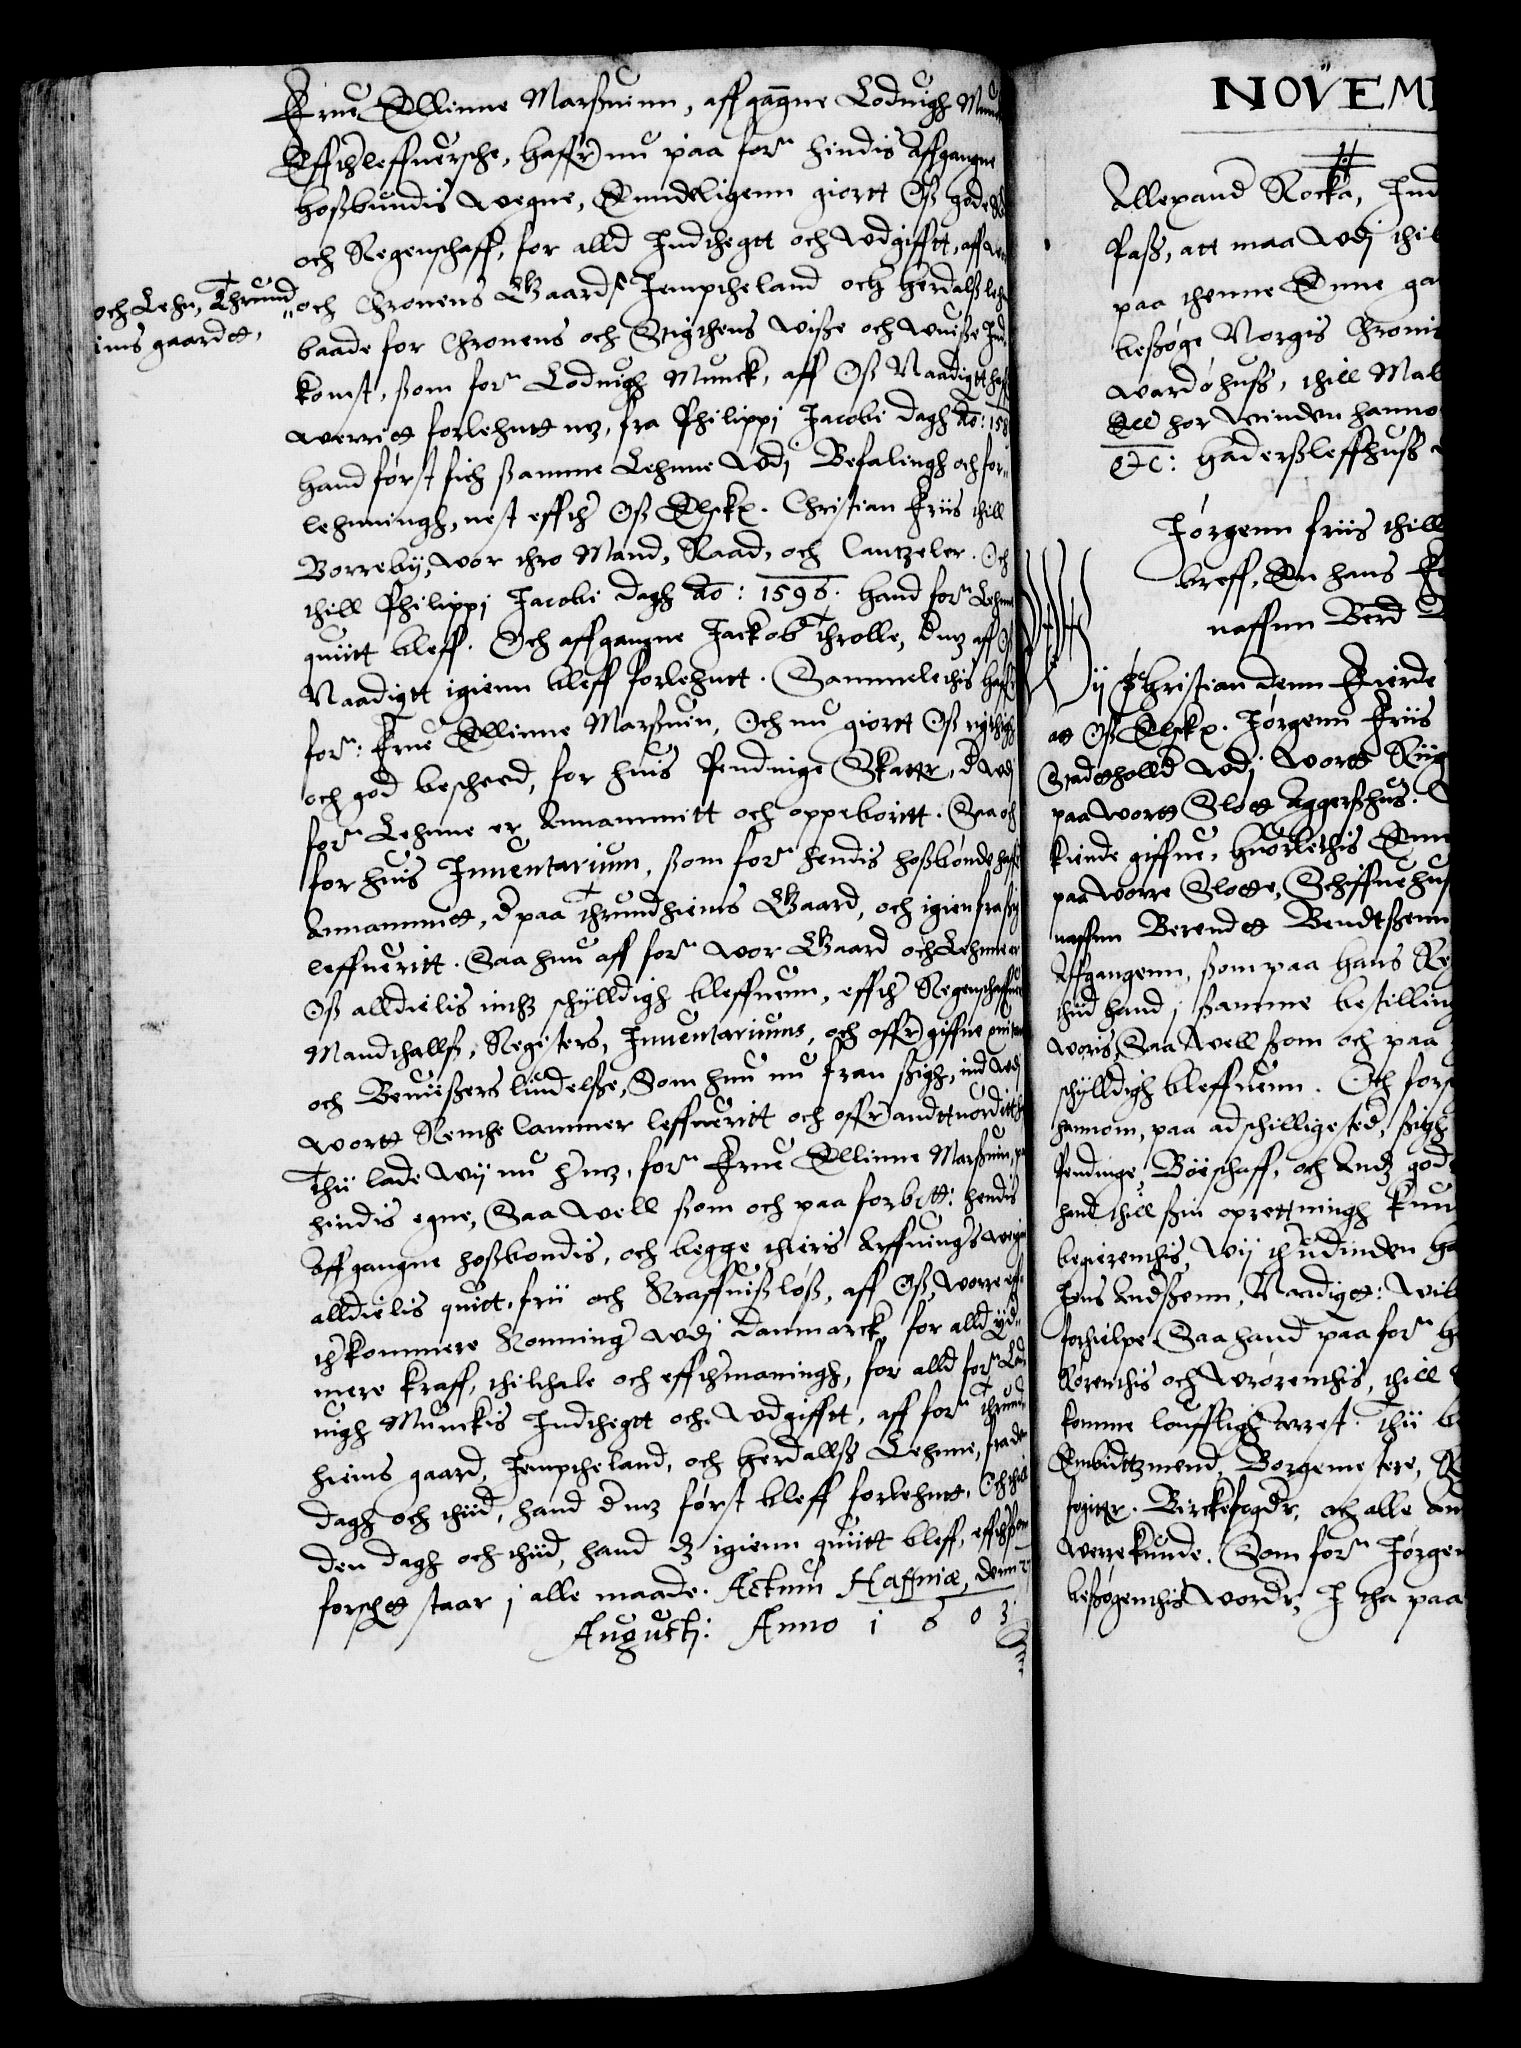 Frue Ellinne Marßuinn, aff gangne Lodvigh Munck
Effterleffuersche, haffr nu paa forn hindis Affgangne
hoßbundis wegne, Enndeligenn giortt Oß gode
och Regenschaff, for alld Indthegtt och Vdgifftt, aff
och Lehn, Thrund
iems gaardtt,
och Chronens Gaardt Jemptheland och Herdalß lehn
baade for Chronens och Stigthens wiße och wuiße Ind
komst, ßom forn Lodvigh Munck, aff Oß Naadigtt haffr
werritt forlehntt mz, fra Philippj Jacobi dagh Ao: 158
hand først fich ßamme Lehnne Vdj Befalingh och for
lehnningh, nest effther Oß Elskx. Christian Friis thill
Borreby, wor thro Mand, Raad, och Cantzeler. Och
thill Philippj Jacobi dagh Ao: 1596. hand forn Lehne
quitt bleff. Och affgangne Jackob Throlle, d mz aff Oß
Naadigtt igienn bleff forlehntt. Sammelethis haffr
forn: Frue Ellinne Marßuin, Och nu giortt Oß rigtigh
och god bescheed, for huis Pendinge Skatter, d Vdj
forn Lehnne er Annammitt och oppeboritt. Saa och
for huis Inuentarium, ßom forn hendis hoßbonde haffr
Annammitt, d paa Thrundhiems Gaard, och igien fra sig
leffueritt. Saa hun aff forn wor Gaard och Lehnne er
Oß alldielis inthz schylldigh bleffuenn, effther Regenschaffuens
Mandthallß, Registers, Inuentariums, och offr giffne
och Beuiißers liudelße, Som hun nu fran ßigh, ind Vdj
wortt Renthe Cammer leffueritt och offr andttuorditt
Thii lade wij nu h mz, forn Frue Ellinne Marßuin, paa
hindis egne, Saa well ßom och paa forbete: hendis
Affgangne hoßbondis, och begge thieris Arffuings wegne
alldielis quitt, frii och Kraffuißløß, aff Oß, worre eff
therkommere Konninger Vdj Danmarck, for alld yd
mere kraff, thilthale och effthermaningh, for alld forn Lod
uigh Munckis Indthegtt och Vdgifftt, aff forn Thrund
hiems gaard, Jemptheland, och Herdallß Lehnne, fra den
dagh och thiid, hand d mz først bleff forlehntt, Och thill
den dagh och thiid, hand dz igienn quiitt bleff, effther ßom
forschtt staar j alle maade. Actum Haffniæ, denn 2
Augustj: Anno 1 6 0 3
NOVEM
Allexand Rocka, Ind
Paß, att maa Vdj thil
paa thenne Enne ga
beßøge Norgis Chronis
Wardøhuß, thill Mal
Ell hor winden hanno
etc: Haderßleffhuß
Jørgenn Friis thill
breff, En hans Fo
naffnn Berd
Wij Christian denn Fierde
att Oß Elskx. Jørgenn Friis
Stadtholld Vdj Wortt Riig
paa wortt Slott Aggerßhus.
kiende giffue, huorlethis Enn
paa worre Slotte, Schiffuehus
naffnn Berendtt Bendtßenn
Affgangenn, ßom paa hans Re
thiid hand j ßamme bestilling
woris, Saa well ßom och paa
schylldigh bleffuenn. Och fors
hannom, paa adschillige sted, ßigh
Pendinge, Boeschaff, och Andz godz
hand thill ßin oprettningh kun
begierenthis, wij thudinden ha
Jens Andßenn, Naadigtt: Wil
forhielpe Saa hand paa forn h
Rørenthis och Wrørenthis, thill
komme louffligh Arrest. Thii be
Embidttzmend, Borgemestere, R
fogitter. Birckefogder, och alle An
werrekunde. Som forn Jørgen
beßøgenthis wordr, J tha paa